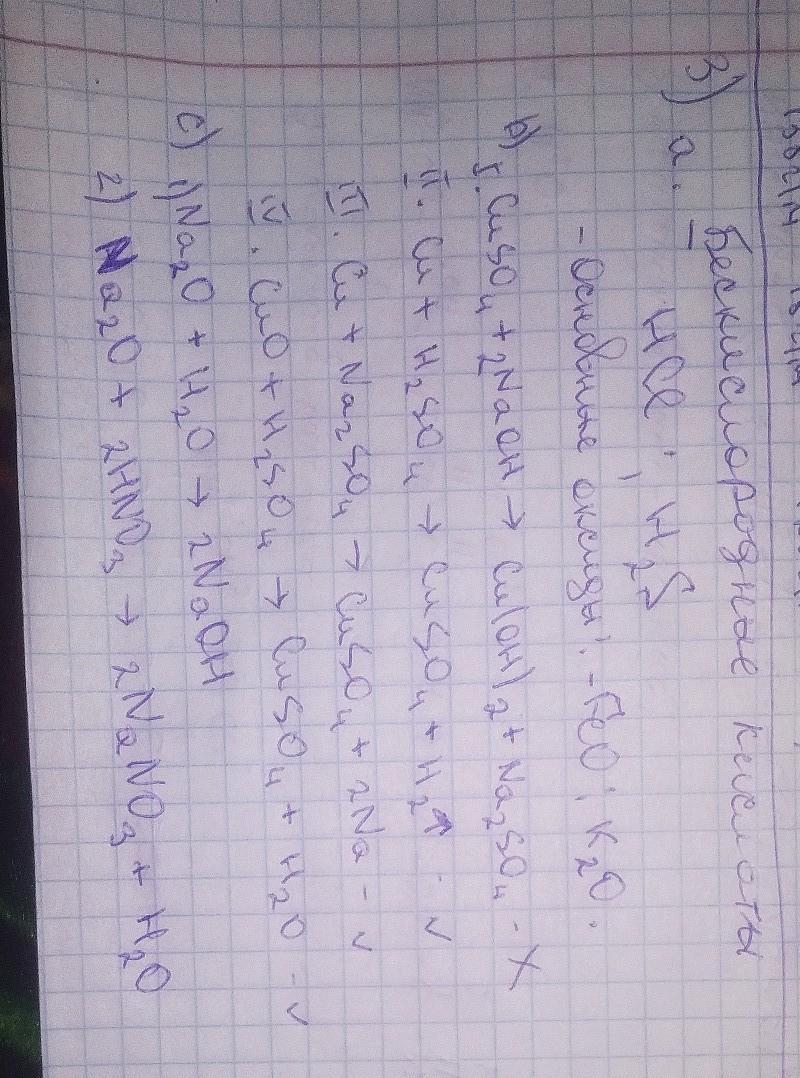 3) a. Бескислородные кислоты
HCl ; H₂S
- Основные оксиды: - FeO; K₂O.
b) I. CuSO₄ + 2NaOH → Cu(OH)₂ + Na₂SO₄ - X
II. Cu + H₂SO₄ → CuSO₄ + H₂↑ - v
III. Cu + Na₂SO₄ → CuSO₄ + 2Na - v
IV. CuO + H₂SO₄ → CuSO₄ + H₂O - v
c) 1) Na₂O + H₂O → 2NaOH
2) Na₂O + 2HNO₃ → 2NaNO₃ + H₂O